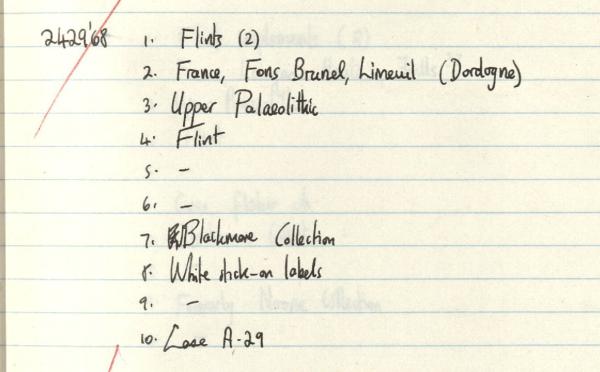 2429'68 1. Flints (2)
2. France, Fons Brunel, Limeuil (Dordogne)
3. Upper Palaeolithic
4. Flint
5. -
6. -
7. Blackmore Collection
8. White stick-on labels
9. -
10. Case A-29